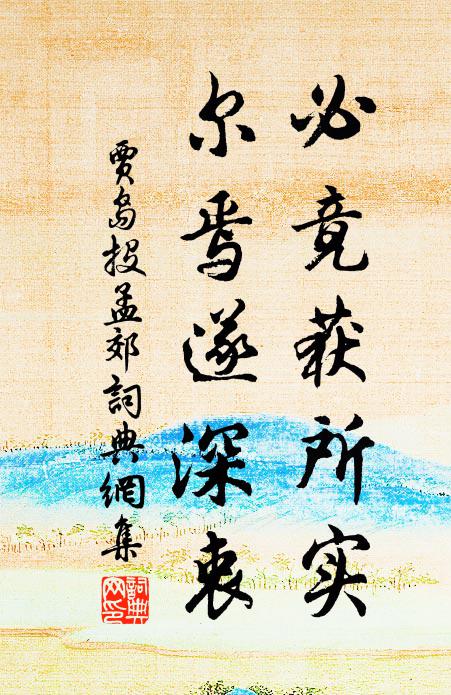 必竟获所实
尔焉遂深衷
贾岛投孟郊詞典網集
詞典網印